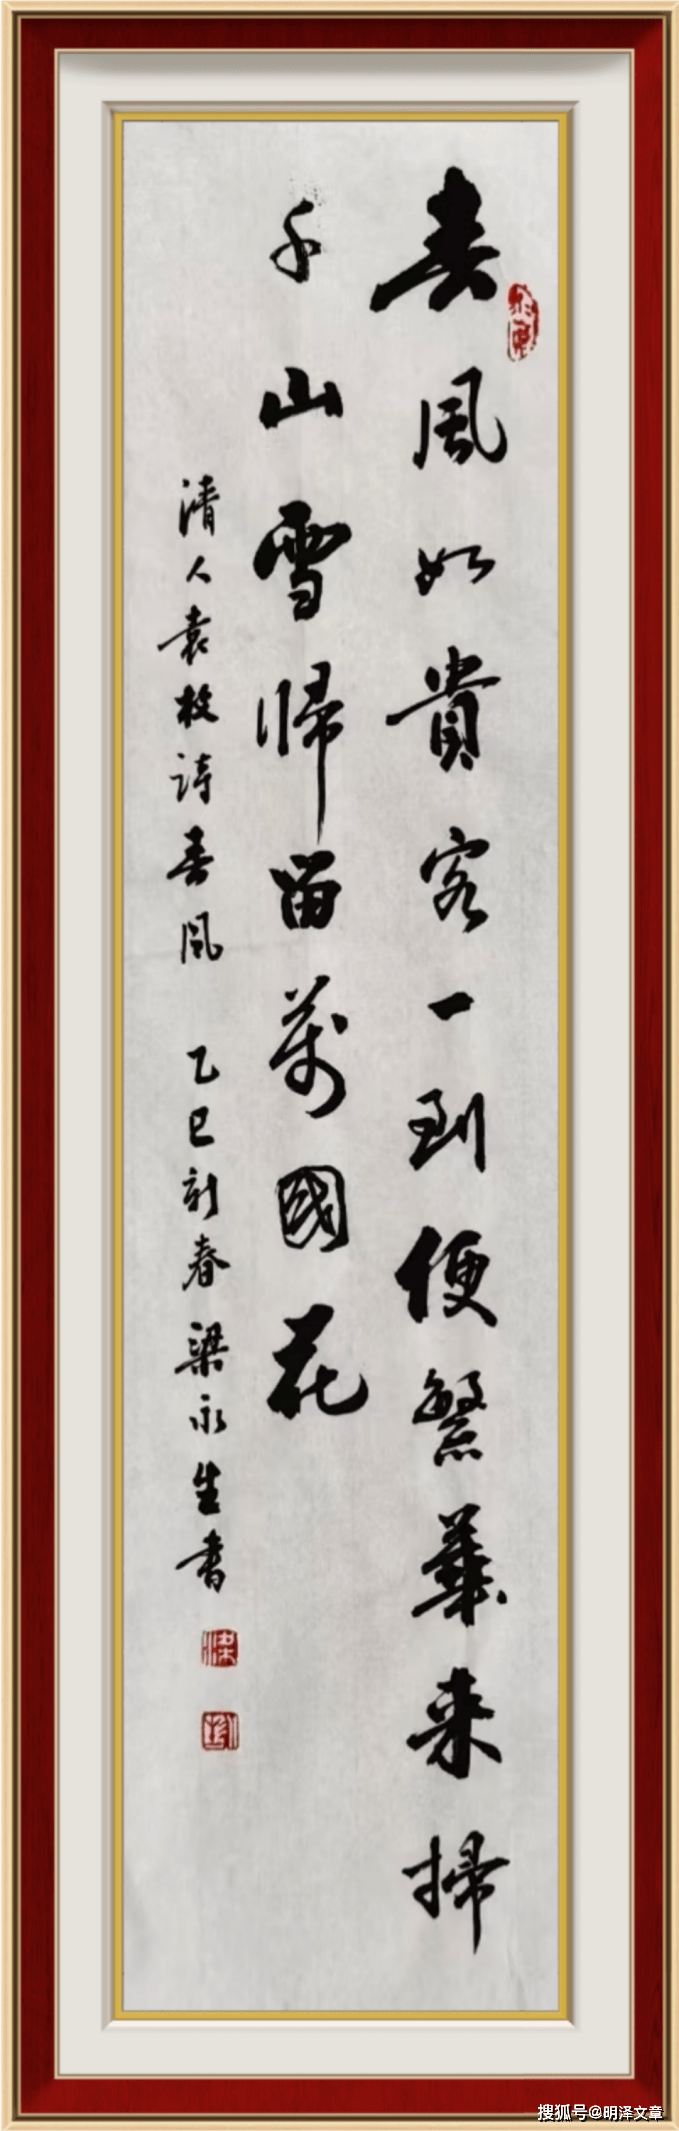 春風如貴客一到便繁華来掃
千山雪歸留萬國花
清人袁枚詩春風 乙巳新春 梁永生書
搜狐号@明泽文章